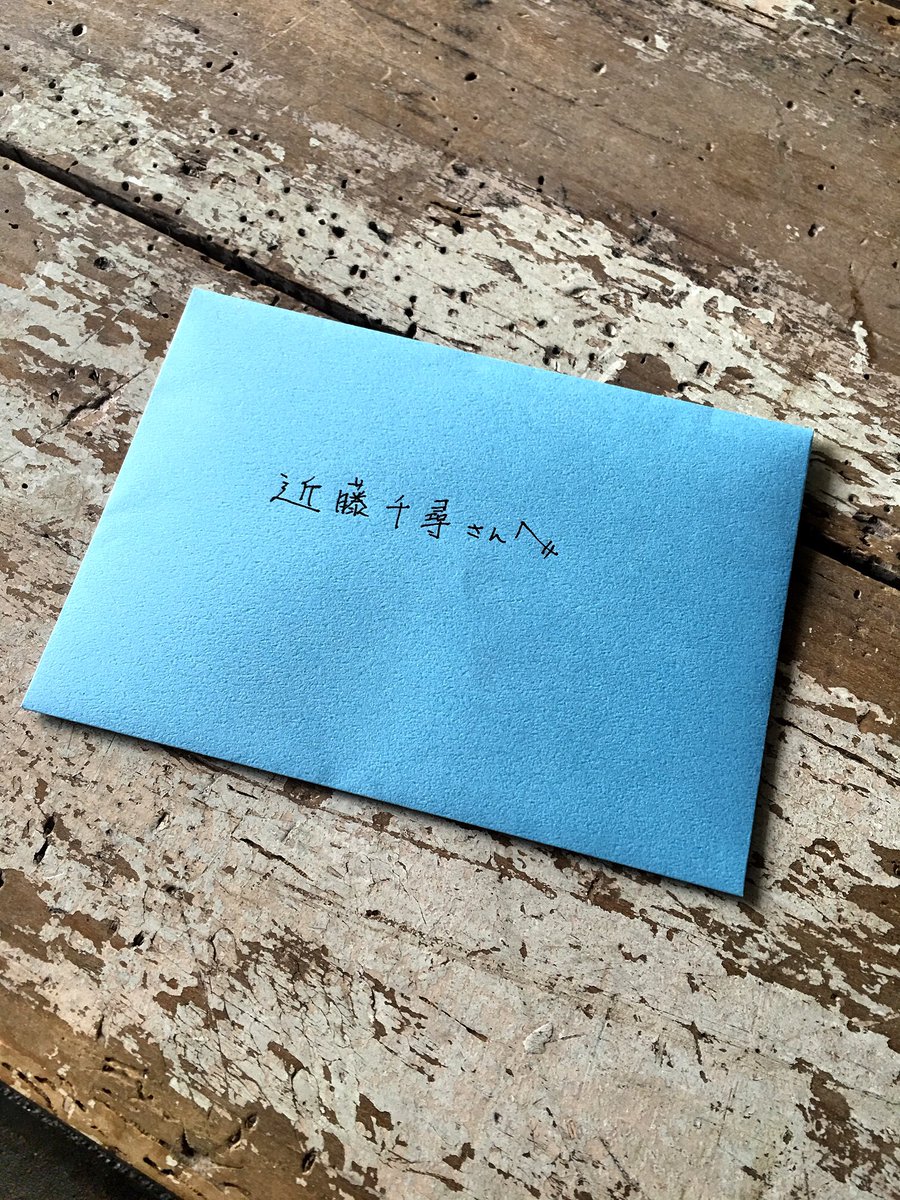 近藤千尋さんへ